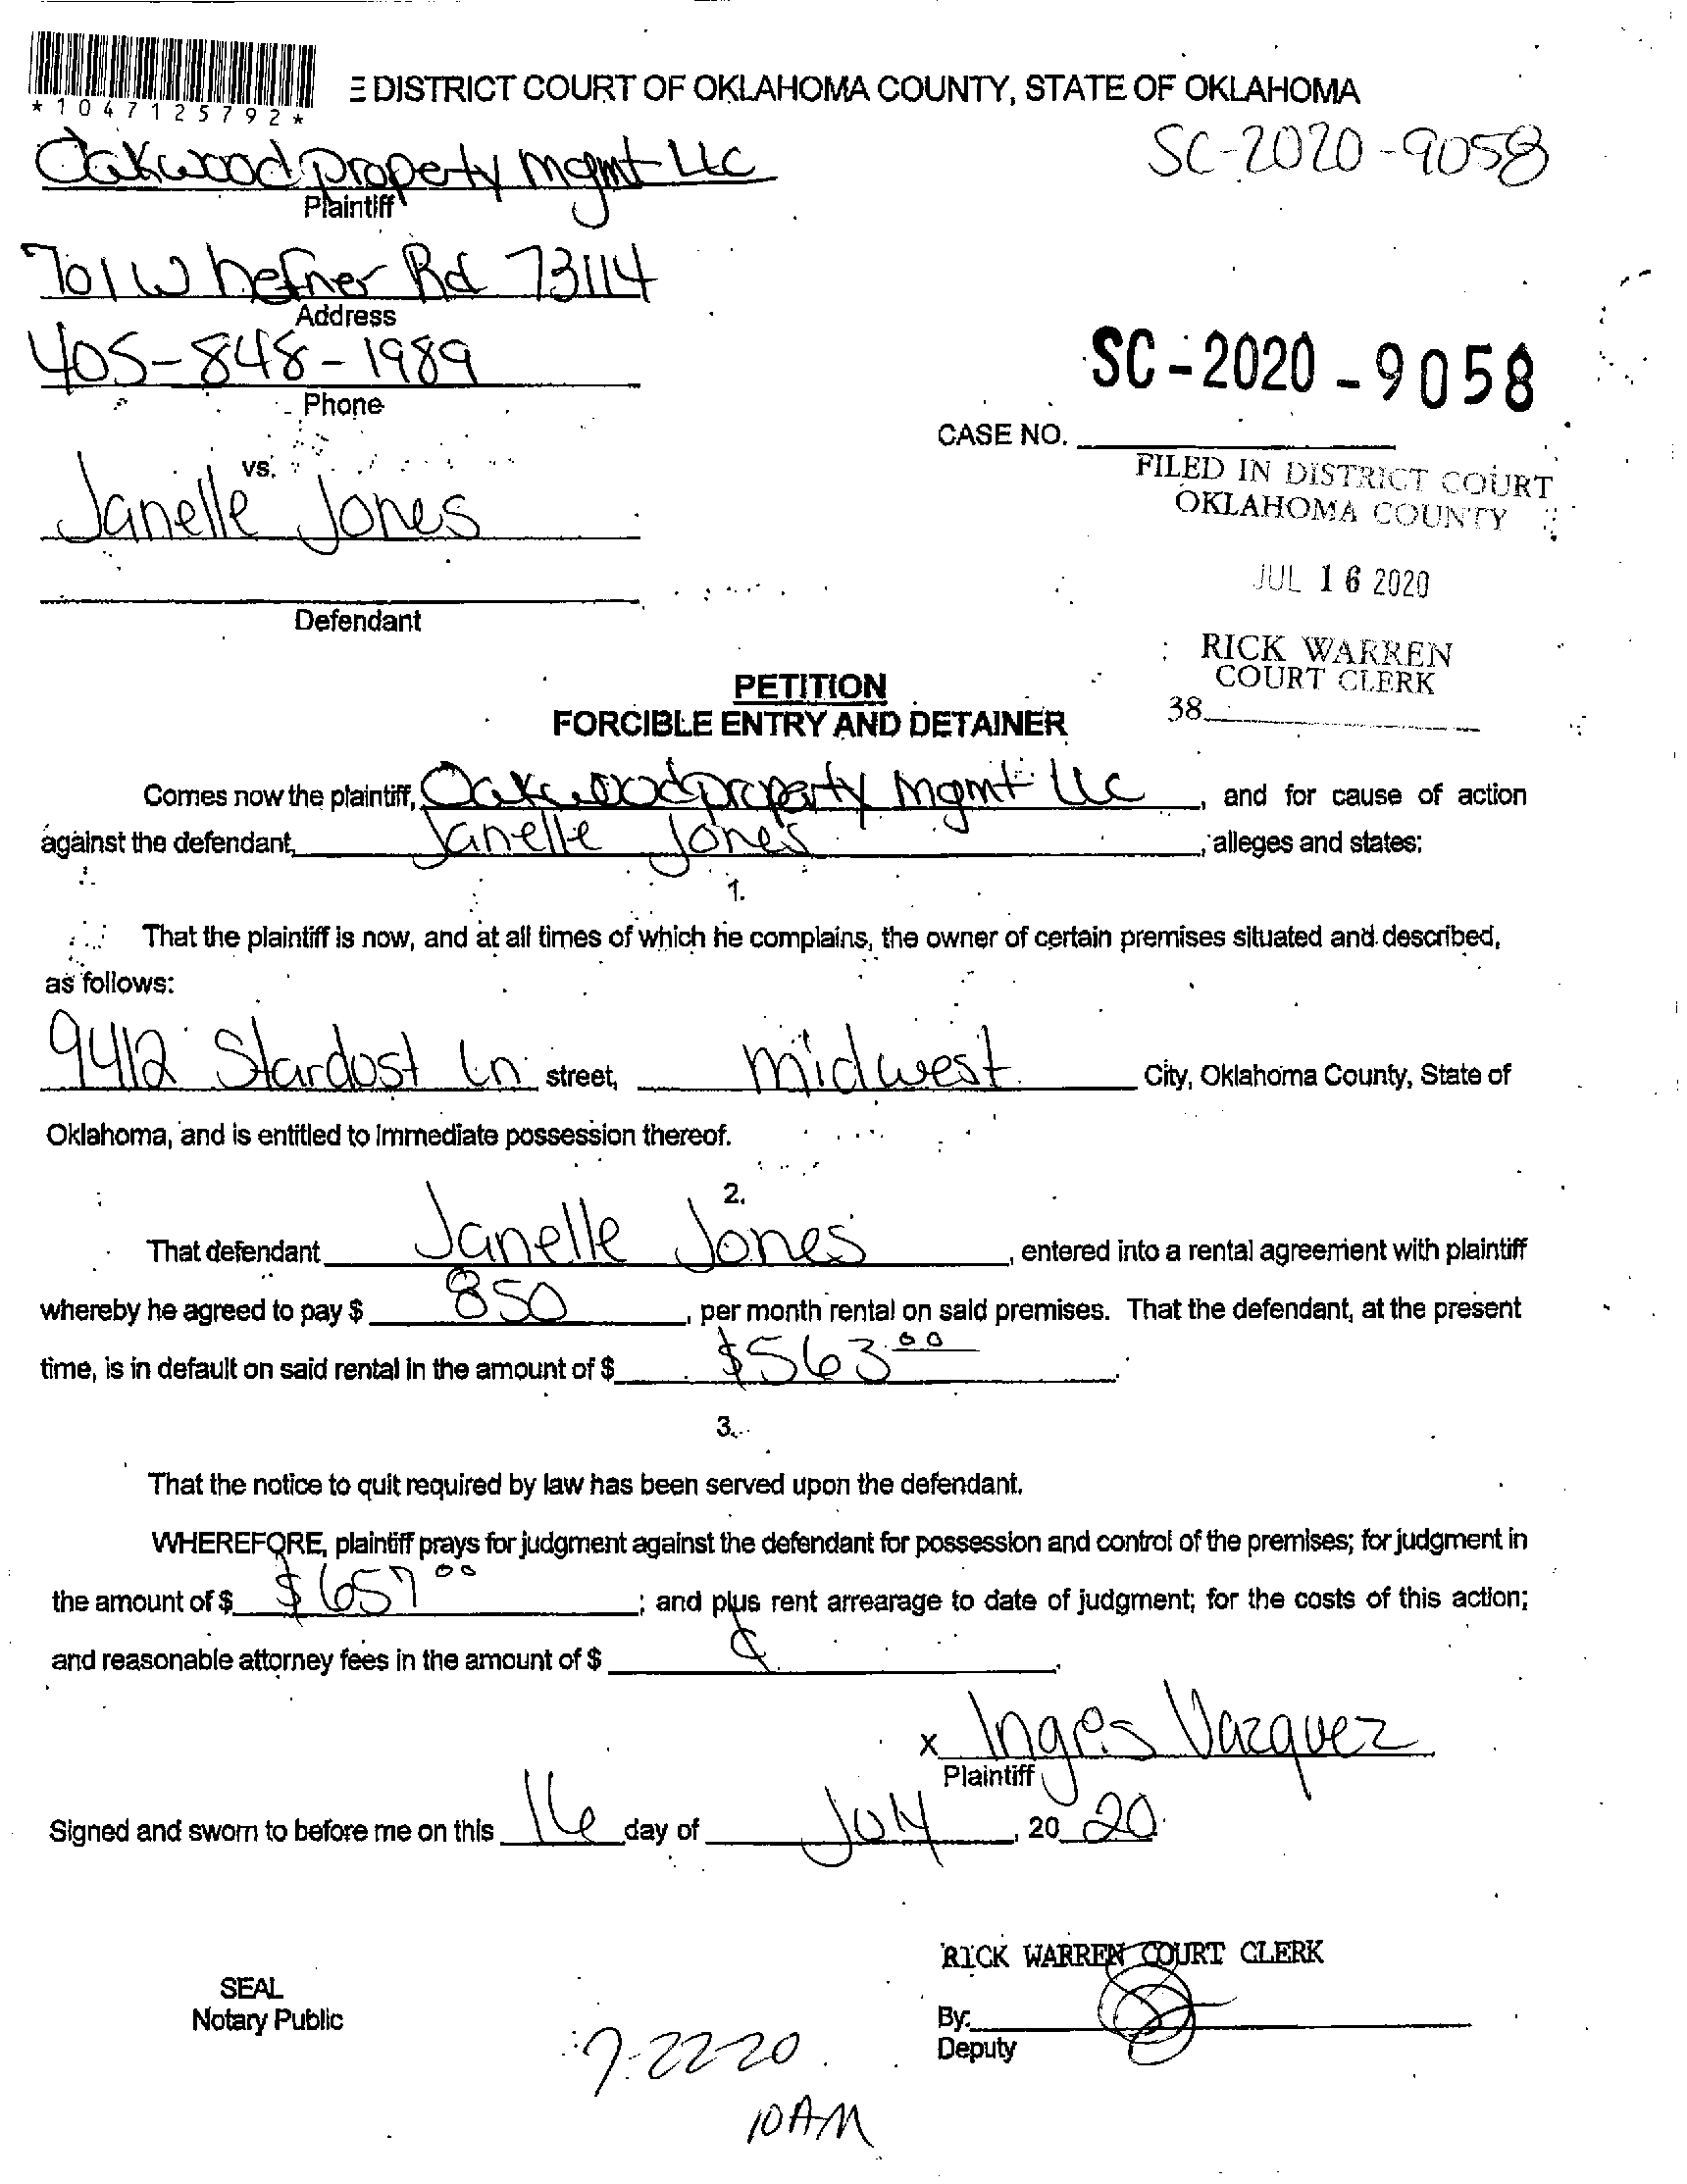 *1047125792*
E DISTRICT COURT OF OKLAHOMA COUNTY, STATE OF OKLAHOMA
Oakwood property mgmt LLC
Plaintiff
SC-2020-9058
701 W hefner Rd 73114
Address
405-848-1989
Phone
SC-2020-9058
CASE NO.
vs.
FILED IN DISTRICT COURT
OKLAHOMA COUNTY
Janelle Jones
Defendant
JUL 16 2020
RICK WARREN
COURT CLERK
38
PETITION
FORCIBLE ENTRY AND DETAINER
Comes now the plaintiff, Oakwood property mgmt LLC, and for cause of action
against the defendant, Janelle Jones, alleges and states:
1.
That the plaintiff is now, and at all times of which he complains, the owner of certain premises situated and described,
as follows:
9412 Stardust Ln street, midwest City, Oklahoma County, State of
Oklahoma, and is entitled to immediate possession thereof.
2.
That defendant Janelle Jones, entered into a rental agreement with plaintiff
whereby he agreed to pay $ 850, per month rental on said premises. That the defendant, at the present
time, is in default on said rental in the amount of $ $563.00.
3.
That the notice to quit required by law has been served upon the defendant.
WHEREFORE, plaintiff prays for judgment against the defendant for possession and control of the premises; for judgment in
the amount of $ $657 00; and plus rent arrearage to date of judgment; for the costs of this action;
and reasonable attorney fees in the amount of $
x Ingris Vazquez
Plaintiff
Signed and sworn to before me on this 16 day of July, 20 20
RICK WARREN COURT CLERK
SEAL
Notary Public
By:
Deputy
7-22-20
10AM